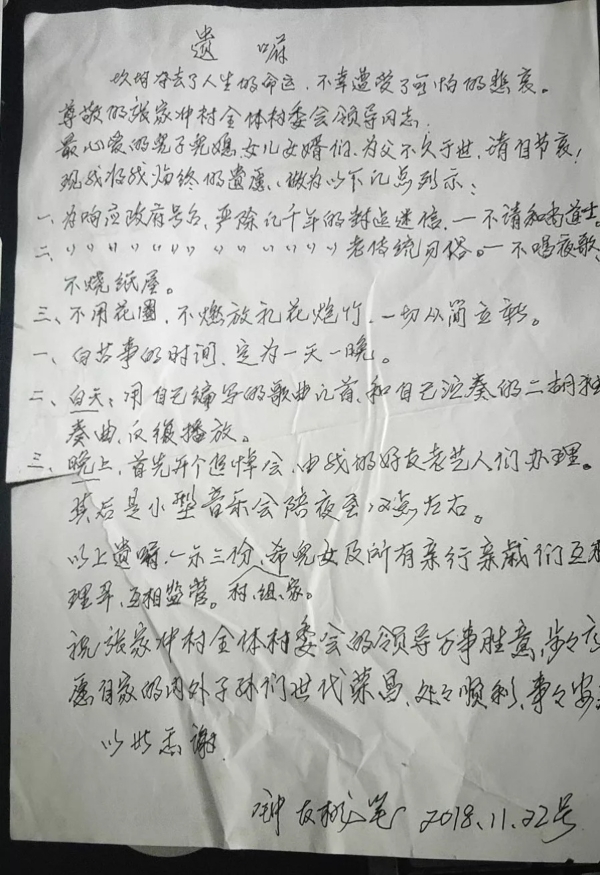 遗 嘱
坎坷夺去了人生的命运,不幸遭受了可怕的悲哀。
尊敬的张家冲村全体村委会领导同志.
最心爱的儿子儿媳,女儿女婿们,为父不久于世,请自节哀!
现我将我临终的遗愿,做为以下几点列示:
一、为响应政府号召,严除几千年的封建迷信,一不请和尚道士。
二、〃〃〃〃〃〃〃〃〃〃老传统习俗。一不唱夜歌,
不烧纸屋。
三、不用花圈,不燃放礼花炮竹,一切从简立新。
一、白喜事的时间,定为一天一晚。
二、白天:用自己编写的歌曲几首,和自己演奏的二胡独
奏曲,反復播放。
三、晚上,首先开个追悼会,由我的好友老艺人们办理。
其后是小型音乐会陪夜至12点左右。
以上遗嘱,一示三份,希儿女及所有亲行亲戚们互相
理平,互相监营。村、组、家。
祝张家冲村全体村委会的领导万事胜意,步々
愿自家的内外子孙们世代荣昌,处々顺利,事々安
以此忝谢
友 笔 2018.11.22号